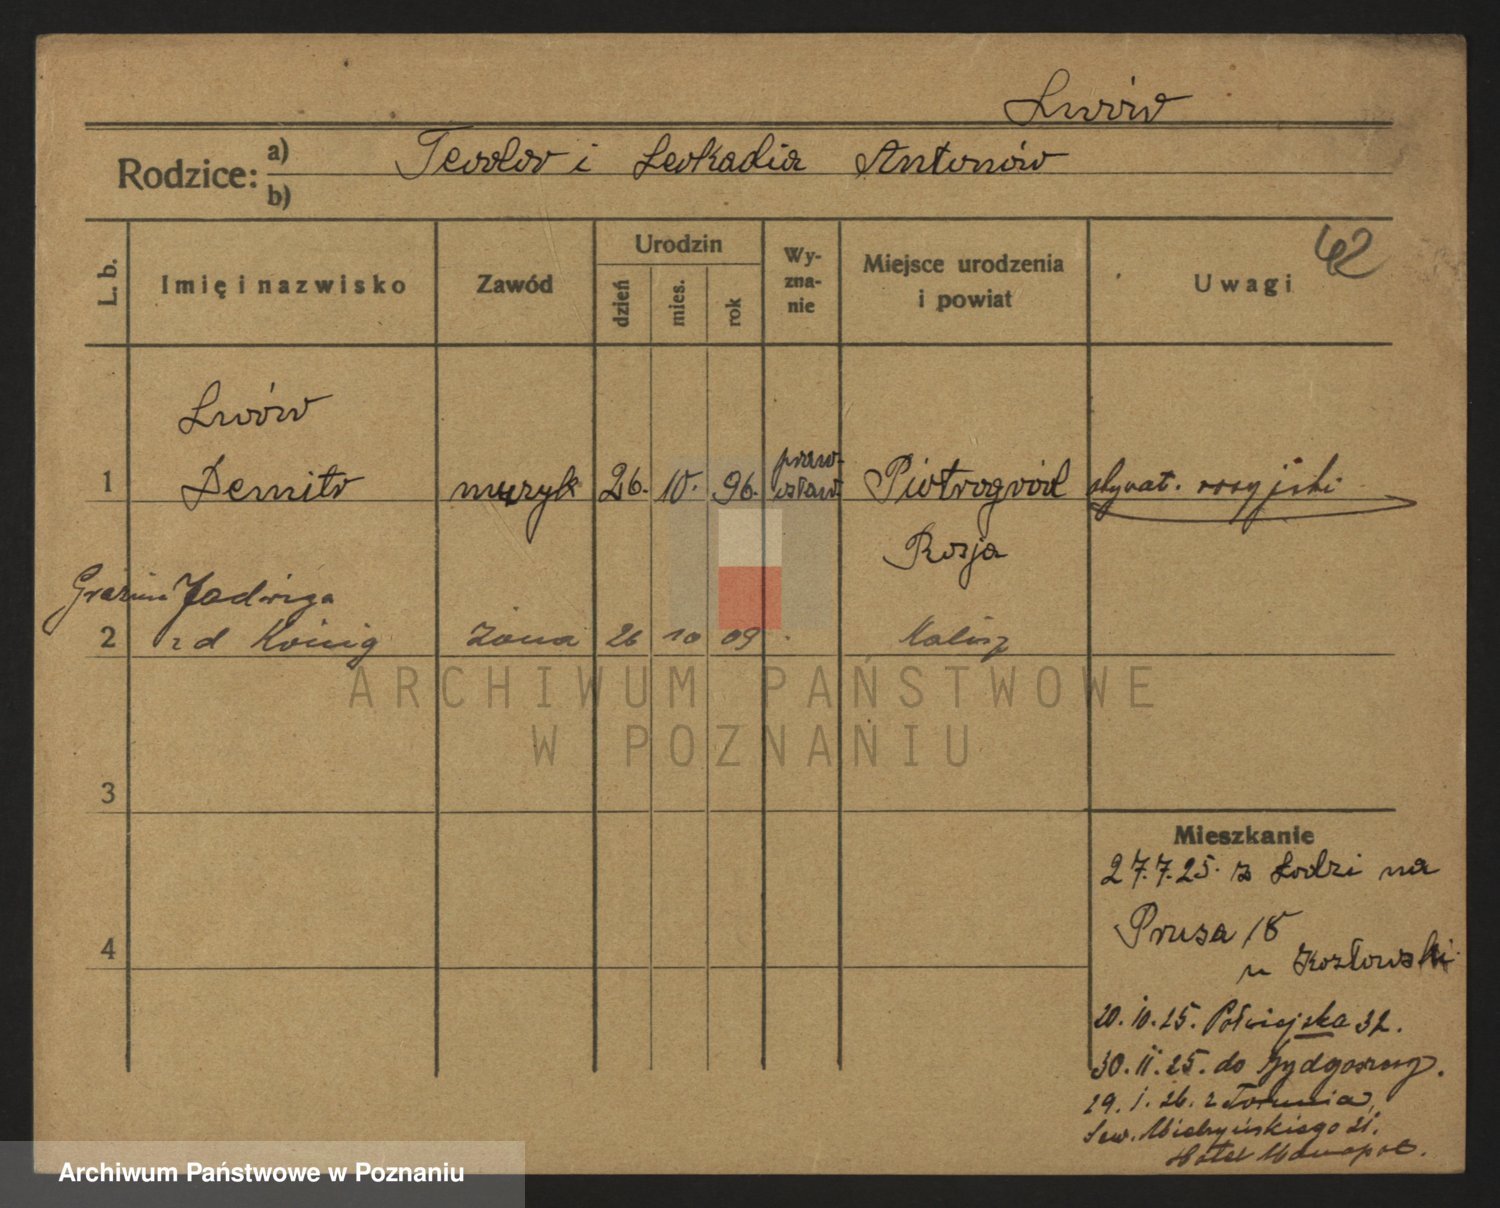 Lwów
Rodzice: a) Teodor i Leokadia Antonów
b)
L. b.
Imię i nazwisko
Zawód
Urodzin
dzień
mies.
rok
Wy-
zna-
nie
Miejsce urodzenia
i powiat
Uwagi
42
Lwów
1 Demitr muzyk 26. 10. 96. praw- osław. Piotrogród obywat. rosyjski
Rosja
Jadwiga
2 z d König żona 26 10 09 Kalisz
3
4
Mieszkanie
27.7.25. z Łodzi na
Prusa 18
u Kozłowski
20.10.25. Półwiejska 32.
30.11.25. do Bydgoszczy.
29.1.26. z Torunia,
Sew. Mielżyńskiego 21.
Hotel Monopol.
ARCHIWUM PAŃSTWOWE
W POZNANIU
Archiwum Państwowe w Poznaniu